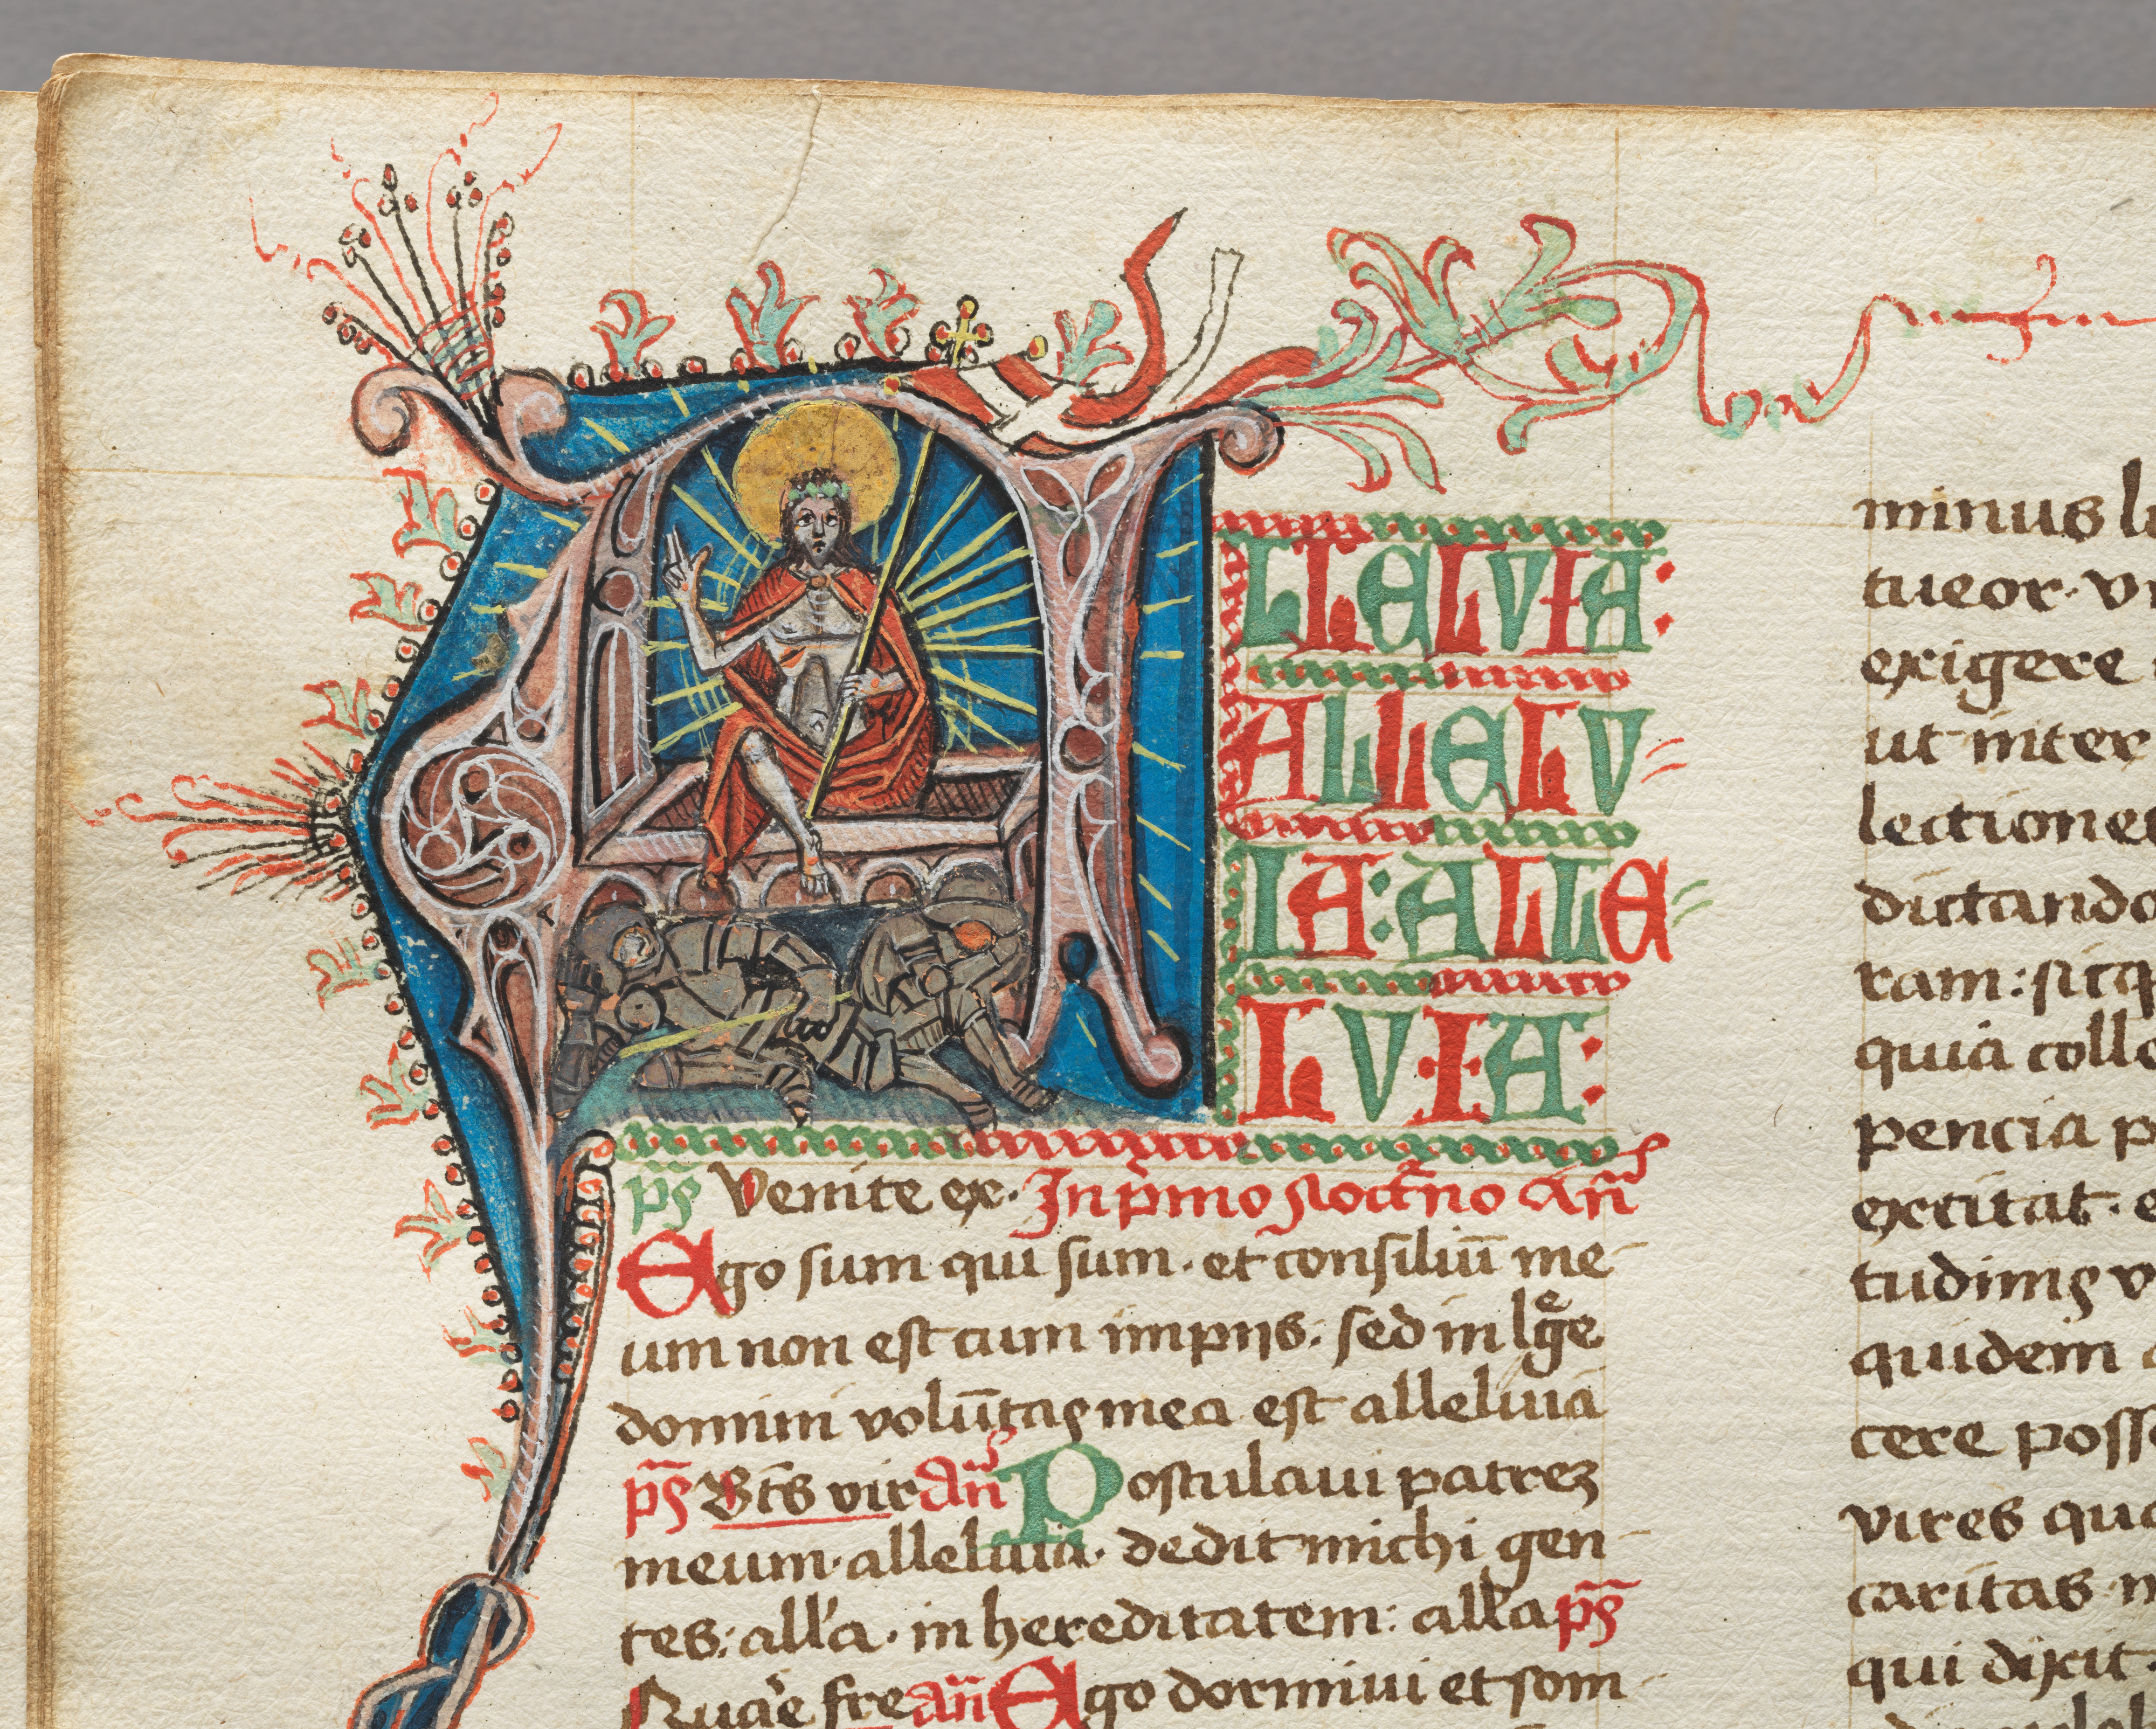 ALLELVIA:
ALLELV
IA: ALLE
LVIA:
ps̄ Venite ex. In pͥmo Noctͬno An̄
Ego sum qui sum. et consiliū me
um non est cum impijs: sed in lege
domini volūtas mea est alleluia
ps̄ Bt̄s vir an̄ Postulaui patrez
meum. alleluia. dedit michi gen
tes: all'a. in hereditatem: all'a ps̄
Quare fre an̄ Ego dormiui et som
minus
tueor. v
exigere
ut inter
lectione
dictando
ram: sicq
quia colle
pencia p
excitat. e
tudinis v
quidem
cere poss
vires qua
caritas. n
qui dixit.